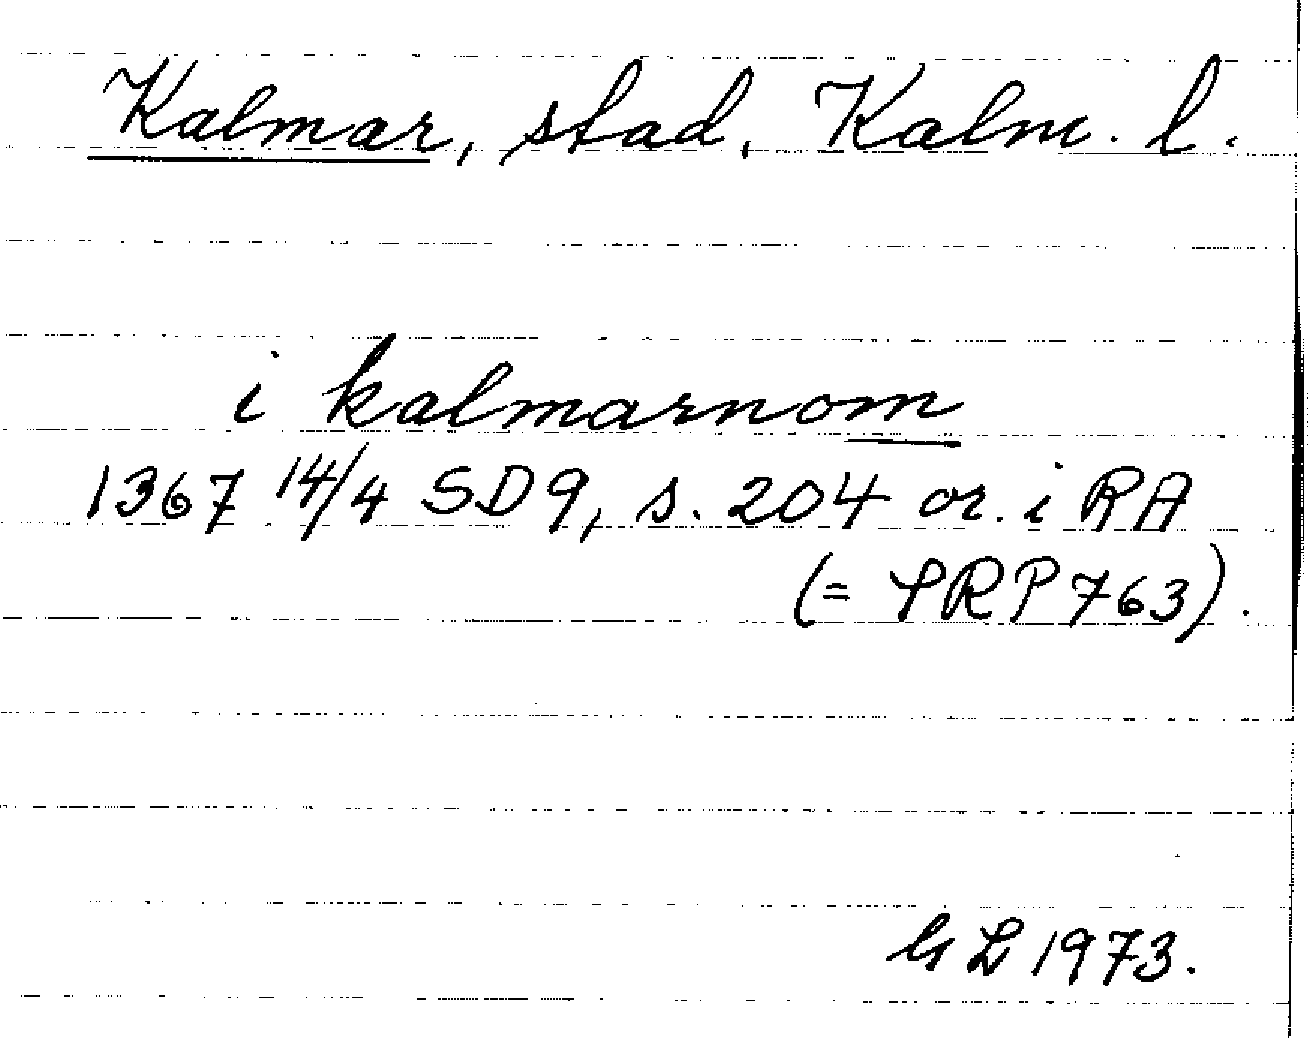 Kalmar, stad, Kalm. l.
i kalmarnom
1367 14/4 SD9, s. 204 or. i RA
(= SRP 763).
GL 1973.